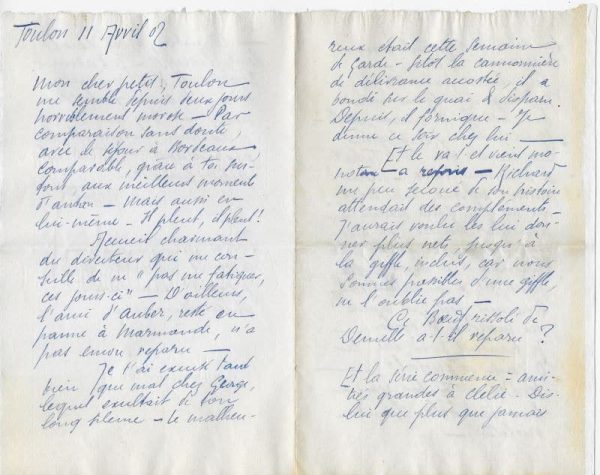 Toulon 11 Avril 02
Mon cher petit, Toulon
me semble depuis deux jours
horriblement morose - Par
comparaison sans doute,
avec le séjour à Bordeaux
comparable, grâce à toi
aux meilleurs moments
d'antan - Mais aussi en
lui-même - Il pleut, il pleut!
Accueil charmant
du directeur qui me con-
seille de m' "pas me fatiguer,
ces jours-ci" - D'ailleurs,
l'ami d'Auber, resté en
panne à Marmande, n'a
pas encore reparu -
Je t'ai excusé tant
bien que mal chez George,
lequel exultait de ton
long - Le malheu-
reux était cette semaine
de garde - sitôt la cannonière
de délivrance accostée, il a
bondi sur le quai & disparu.
Depuis, il fornique - Je
dîne ce soir chez lui -
Et le va-et-vient mo-
notone a repris - Richard
un peu de son histoire
attendait des compléments -
J'aurais voulu les lui don-
ner plus nets, jusqu'à
la giffle, inclus, car nous
sommes passibles d'une giffle,
ne l'oublie pas -
Ce Bœuf de
a-t-il reparu ?
Et la série commence - ami-
tiés grandes à Clélie - Dis-
lui que plus que jamais